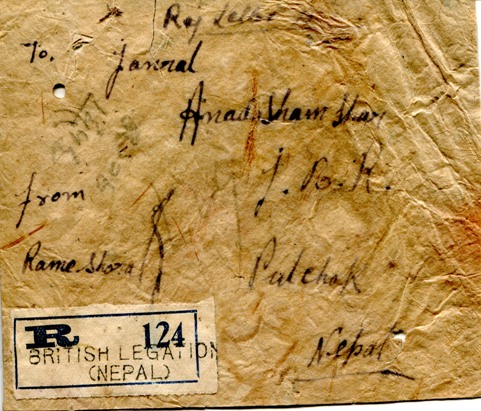 Reg Letter
To. Janral
Anada Sham Shar
J. B. R.
From
Rameshora
Pulchok
Nepal
R 124
BRITISH LEGATION
(NEPAL)